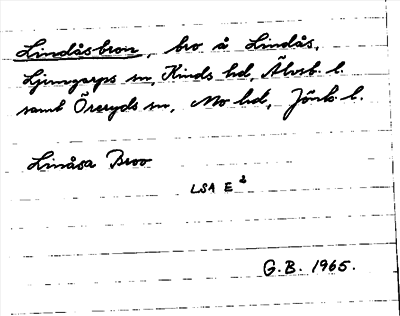 Lindåsbron, bro å Lindås,
Ljungarps sn, Kinds hd, Älvsb. l.
samt Öreryds sn, Mo hd, Jönk. l.
Linåsa Broo
LSA E²
G.B. 1965.